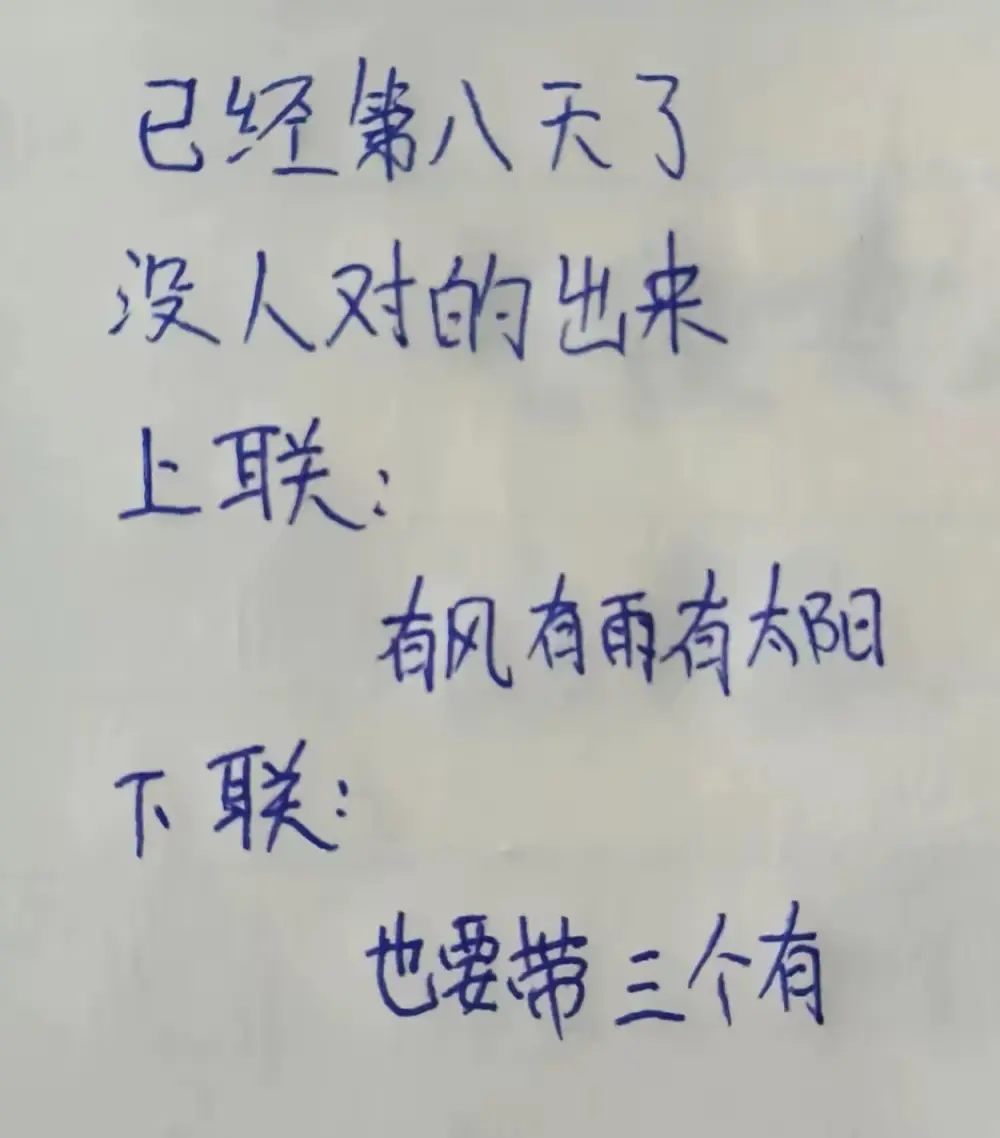 已经第八天了
没人对的出来
上联：
有风有雨有太阳
下联：
也要带三个有